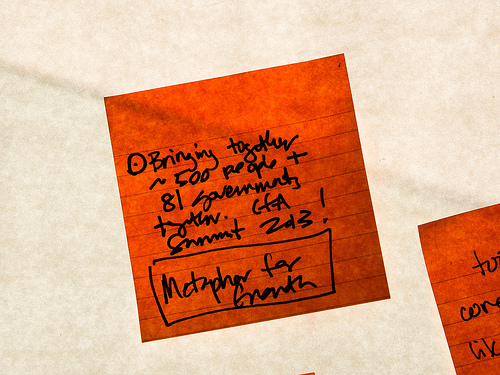 Bringing together
~ 500 people +
81 governments
together. CfA
Summit 2013!
Metaphor for
Growth
con
lik